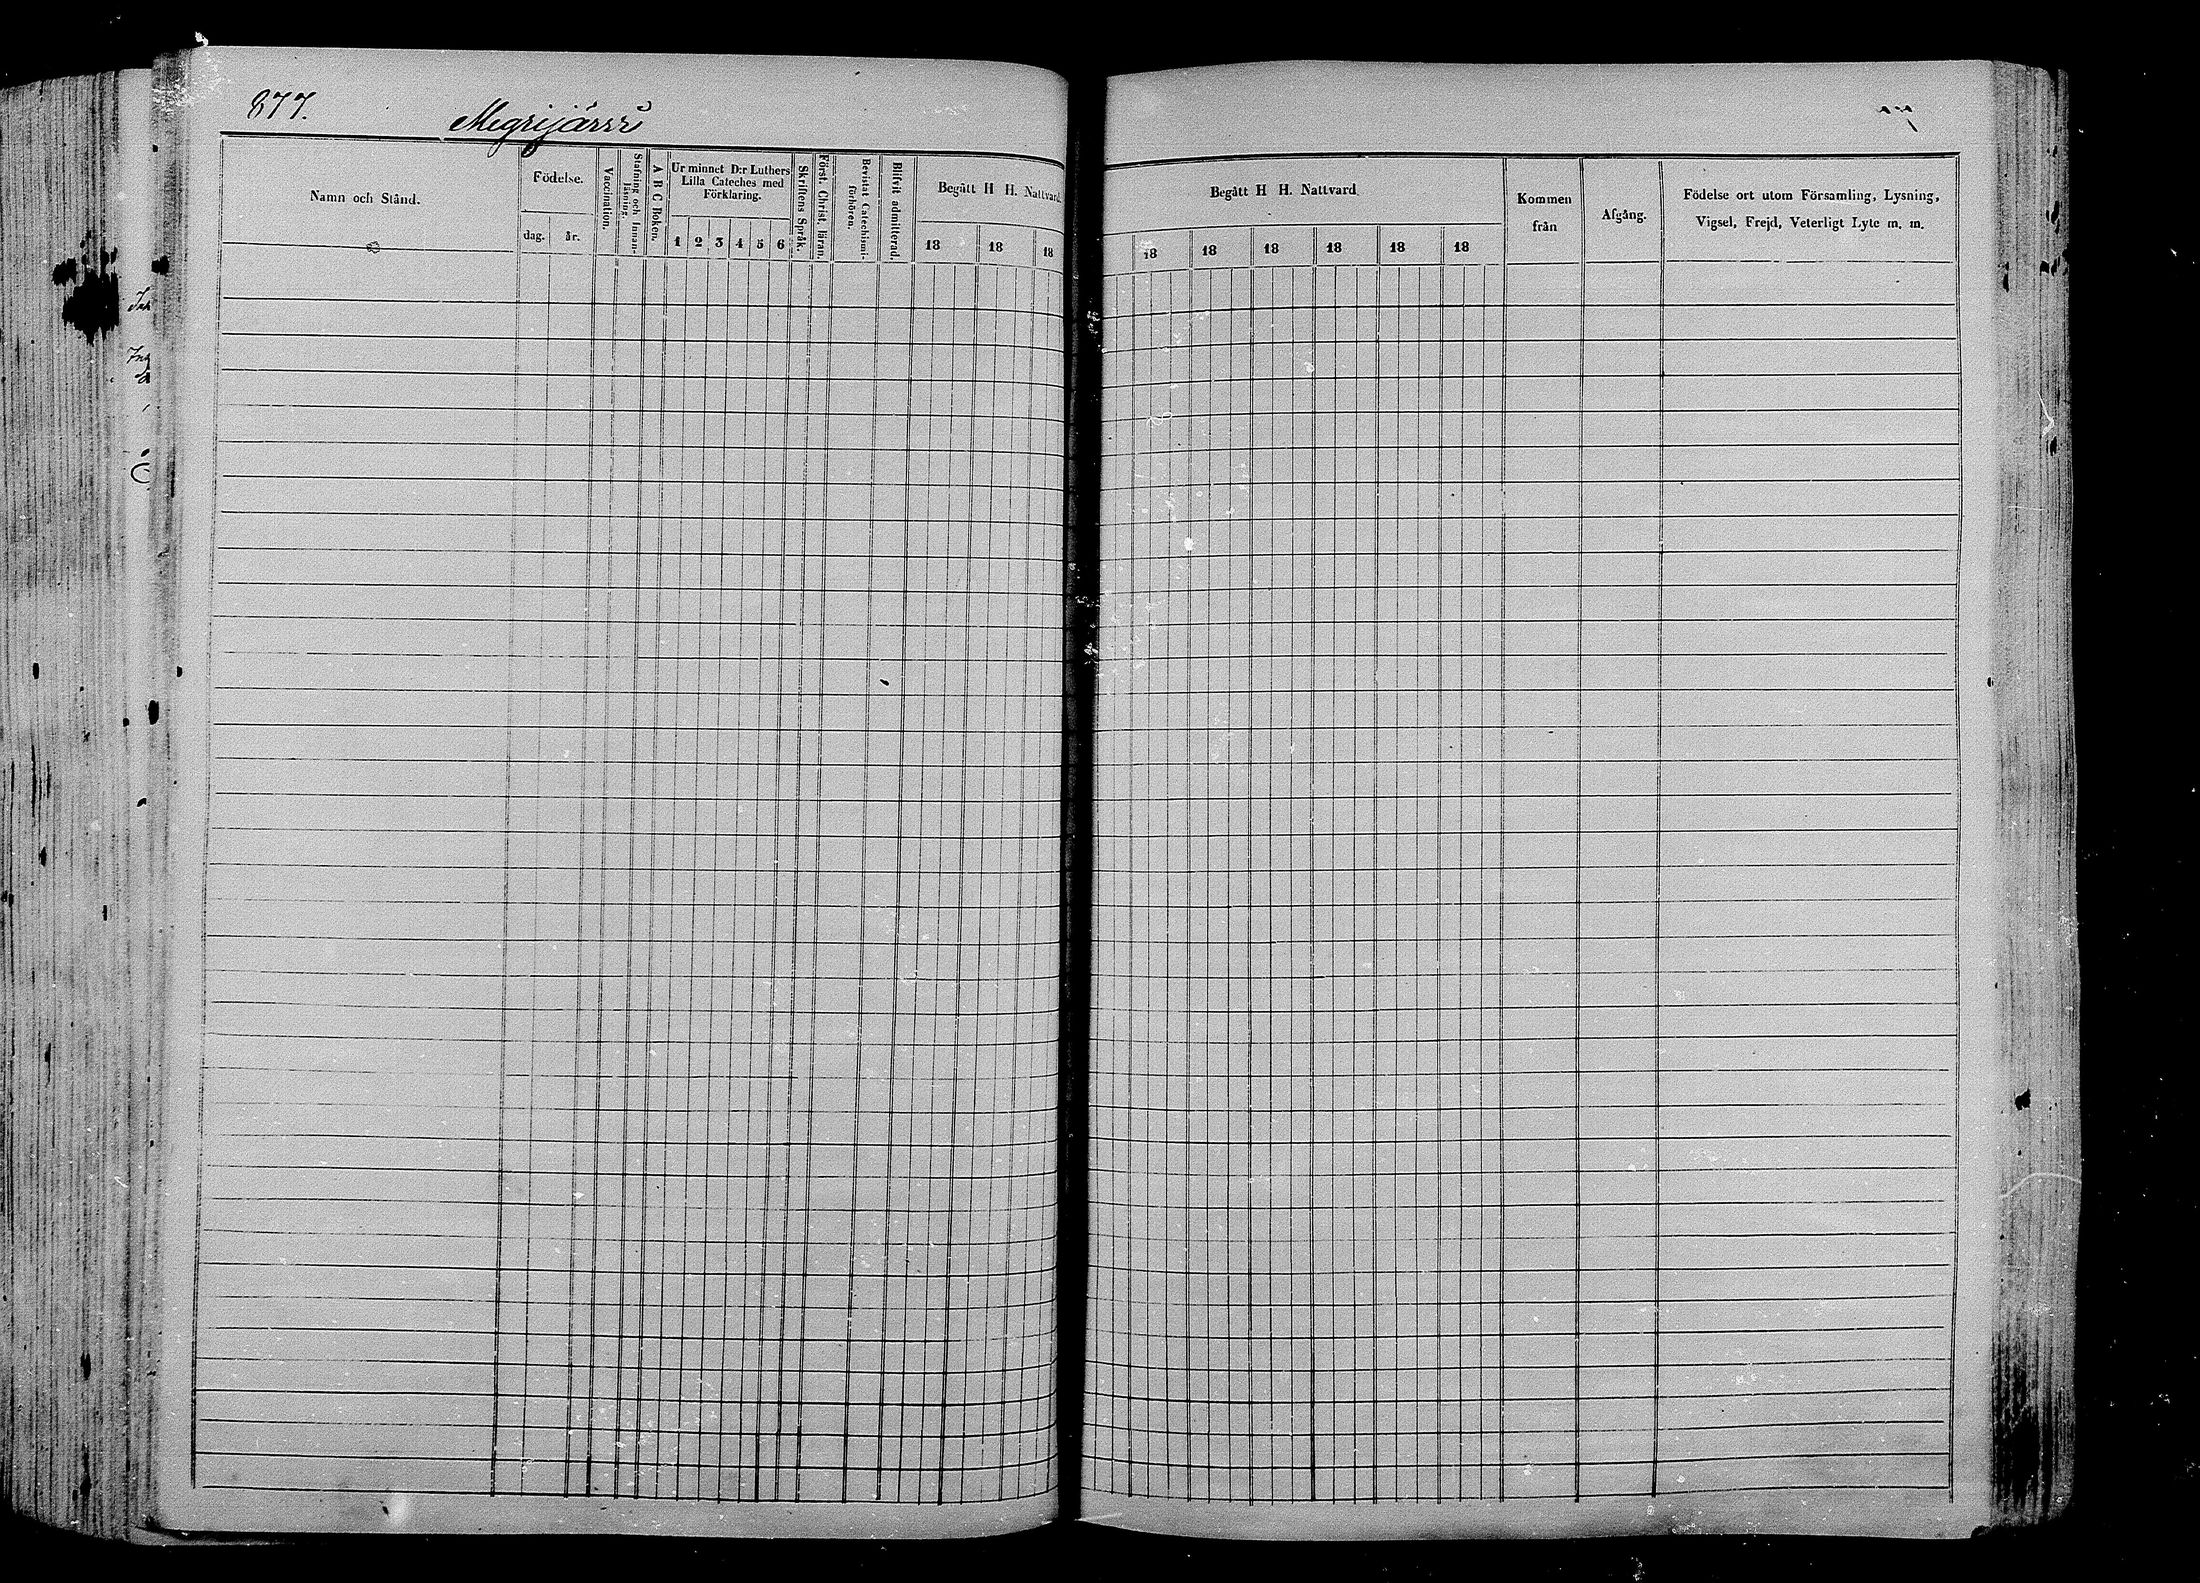 877.
Megrijärvi
Namn och Stånd.
Födelse.
dag. år.
Vaccination.
Stafning och Innan-
läsning.
A B C Boken.
Ur minnet D:r Luthers
Lilla Cateches med
Förklaring.
1 2 3 4 5 6
Skriftens Språk.
Först. Christ. läran.
Bevistat Catechismi-
förhören.
Blifvit admitterad.
Begått H H. Nattvard.
18 18 18
Begått H H. Nattvard
18 18 18 18 18 18
Kommen
från
Afgång.
Födelse ort utom Församling, Lysning,
Vigsel, Frejd, Veterligt Lyte m. m.